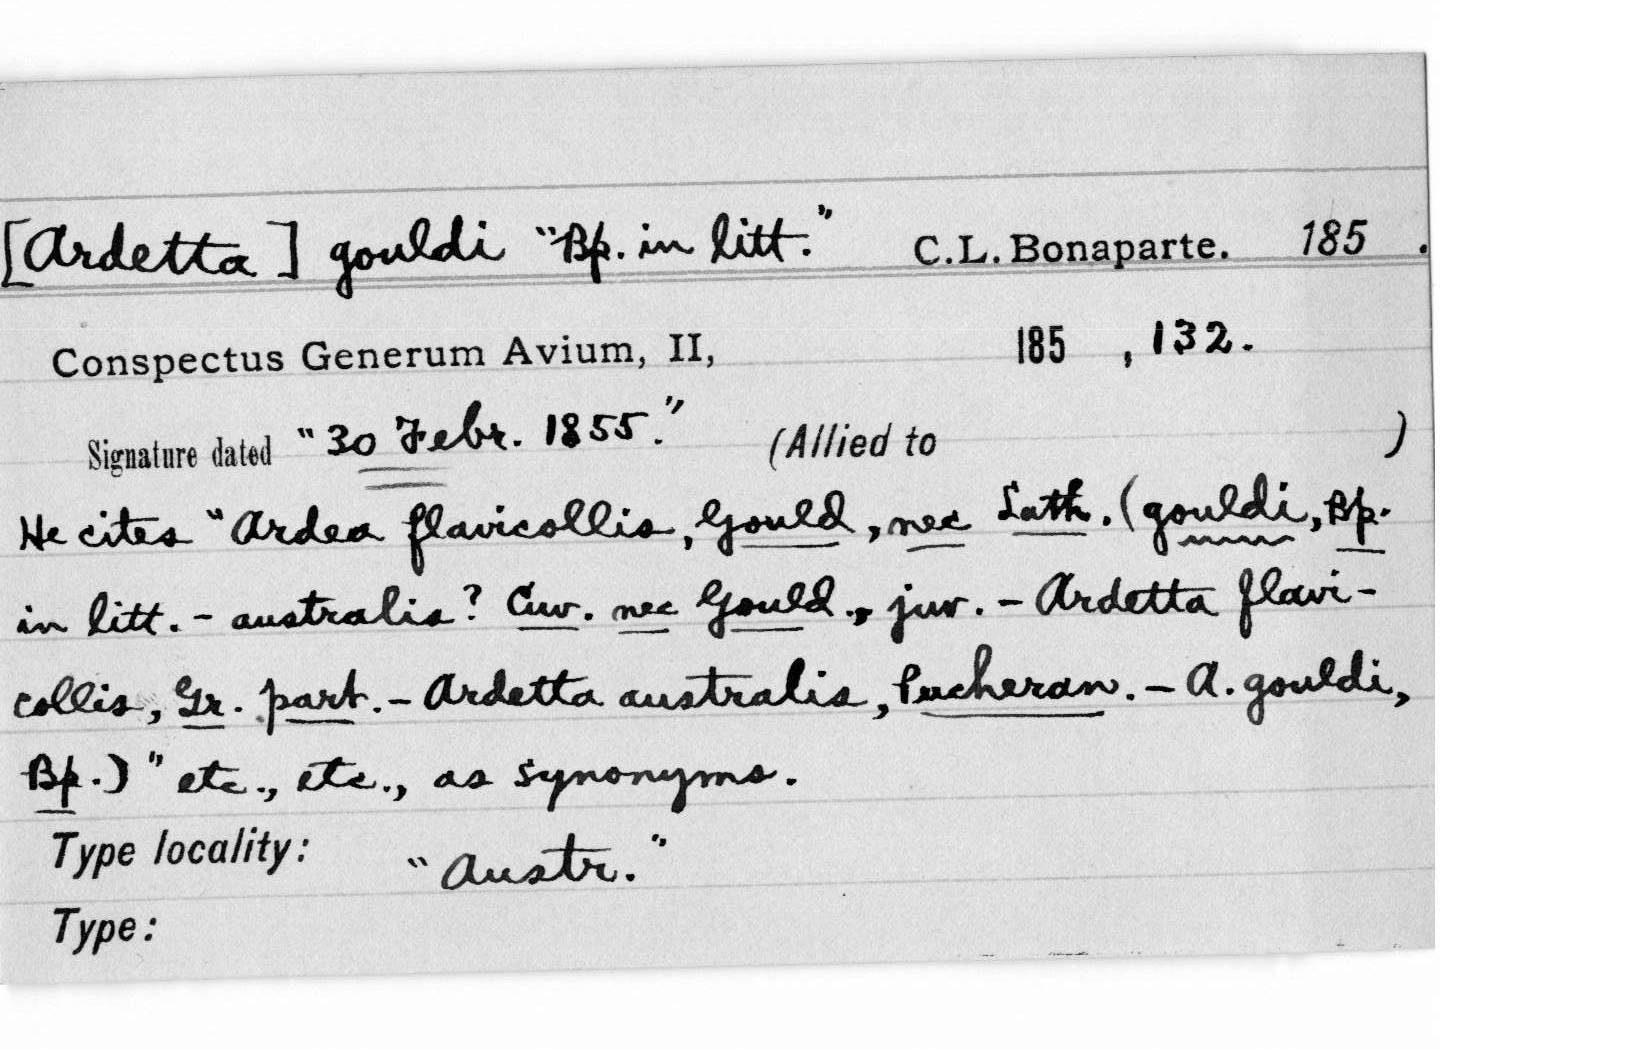 [Ardetta] gouldi "Bp. in litt." C.L. Bonaparte. 185 .
Conspectus Generum Avium, II, 185 , 132.
Signature dated "30 Febr. 1855." (Allied to )
He cites "Ardea flavicollis, Gould, nec Lath. (gouldi, Bp.
in litt. - australis? Cuv. nec Gould., juv. - Ardetta flavi-
collis, Gr. part. - Ardetta australis, Pucheran. - A. gouldi,
Bp.)" etc., etc., as synonyms.
Type locality: "Austr."
Type: